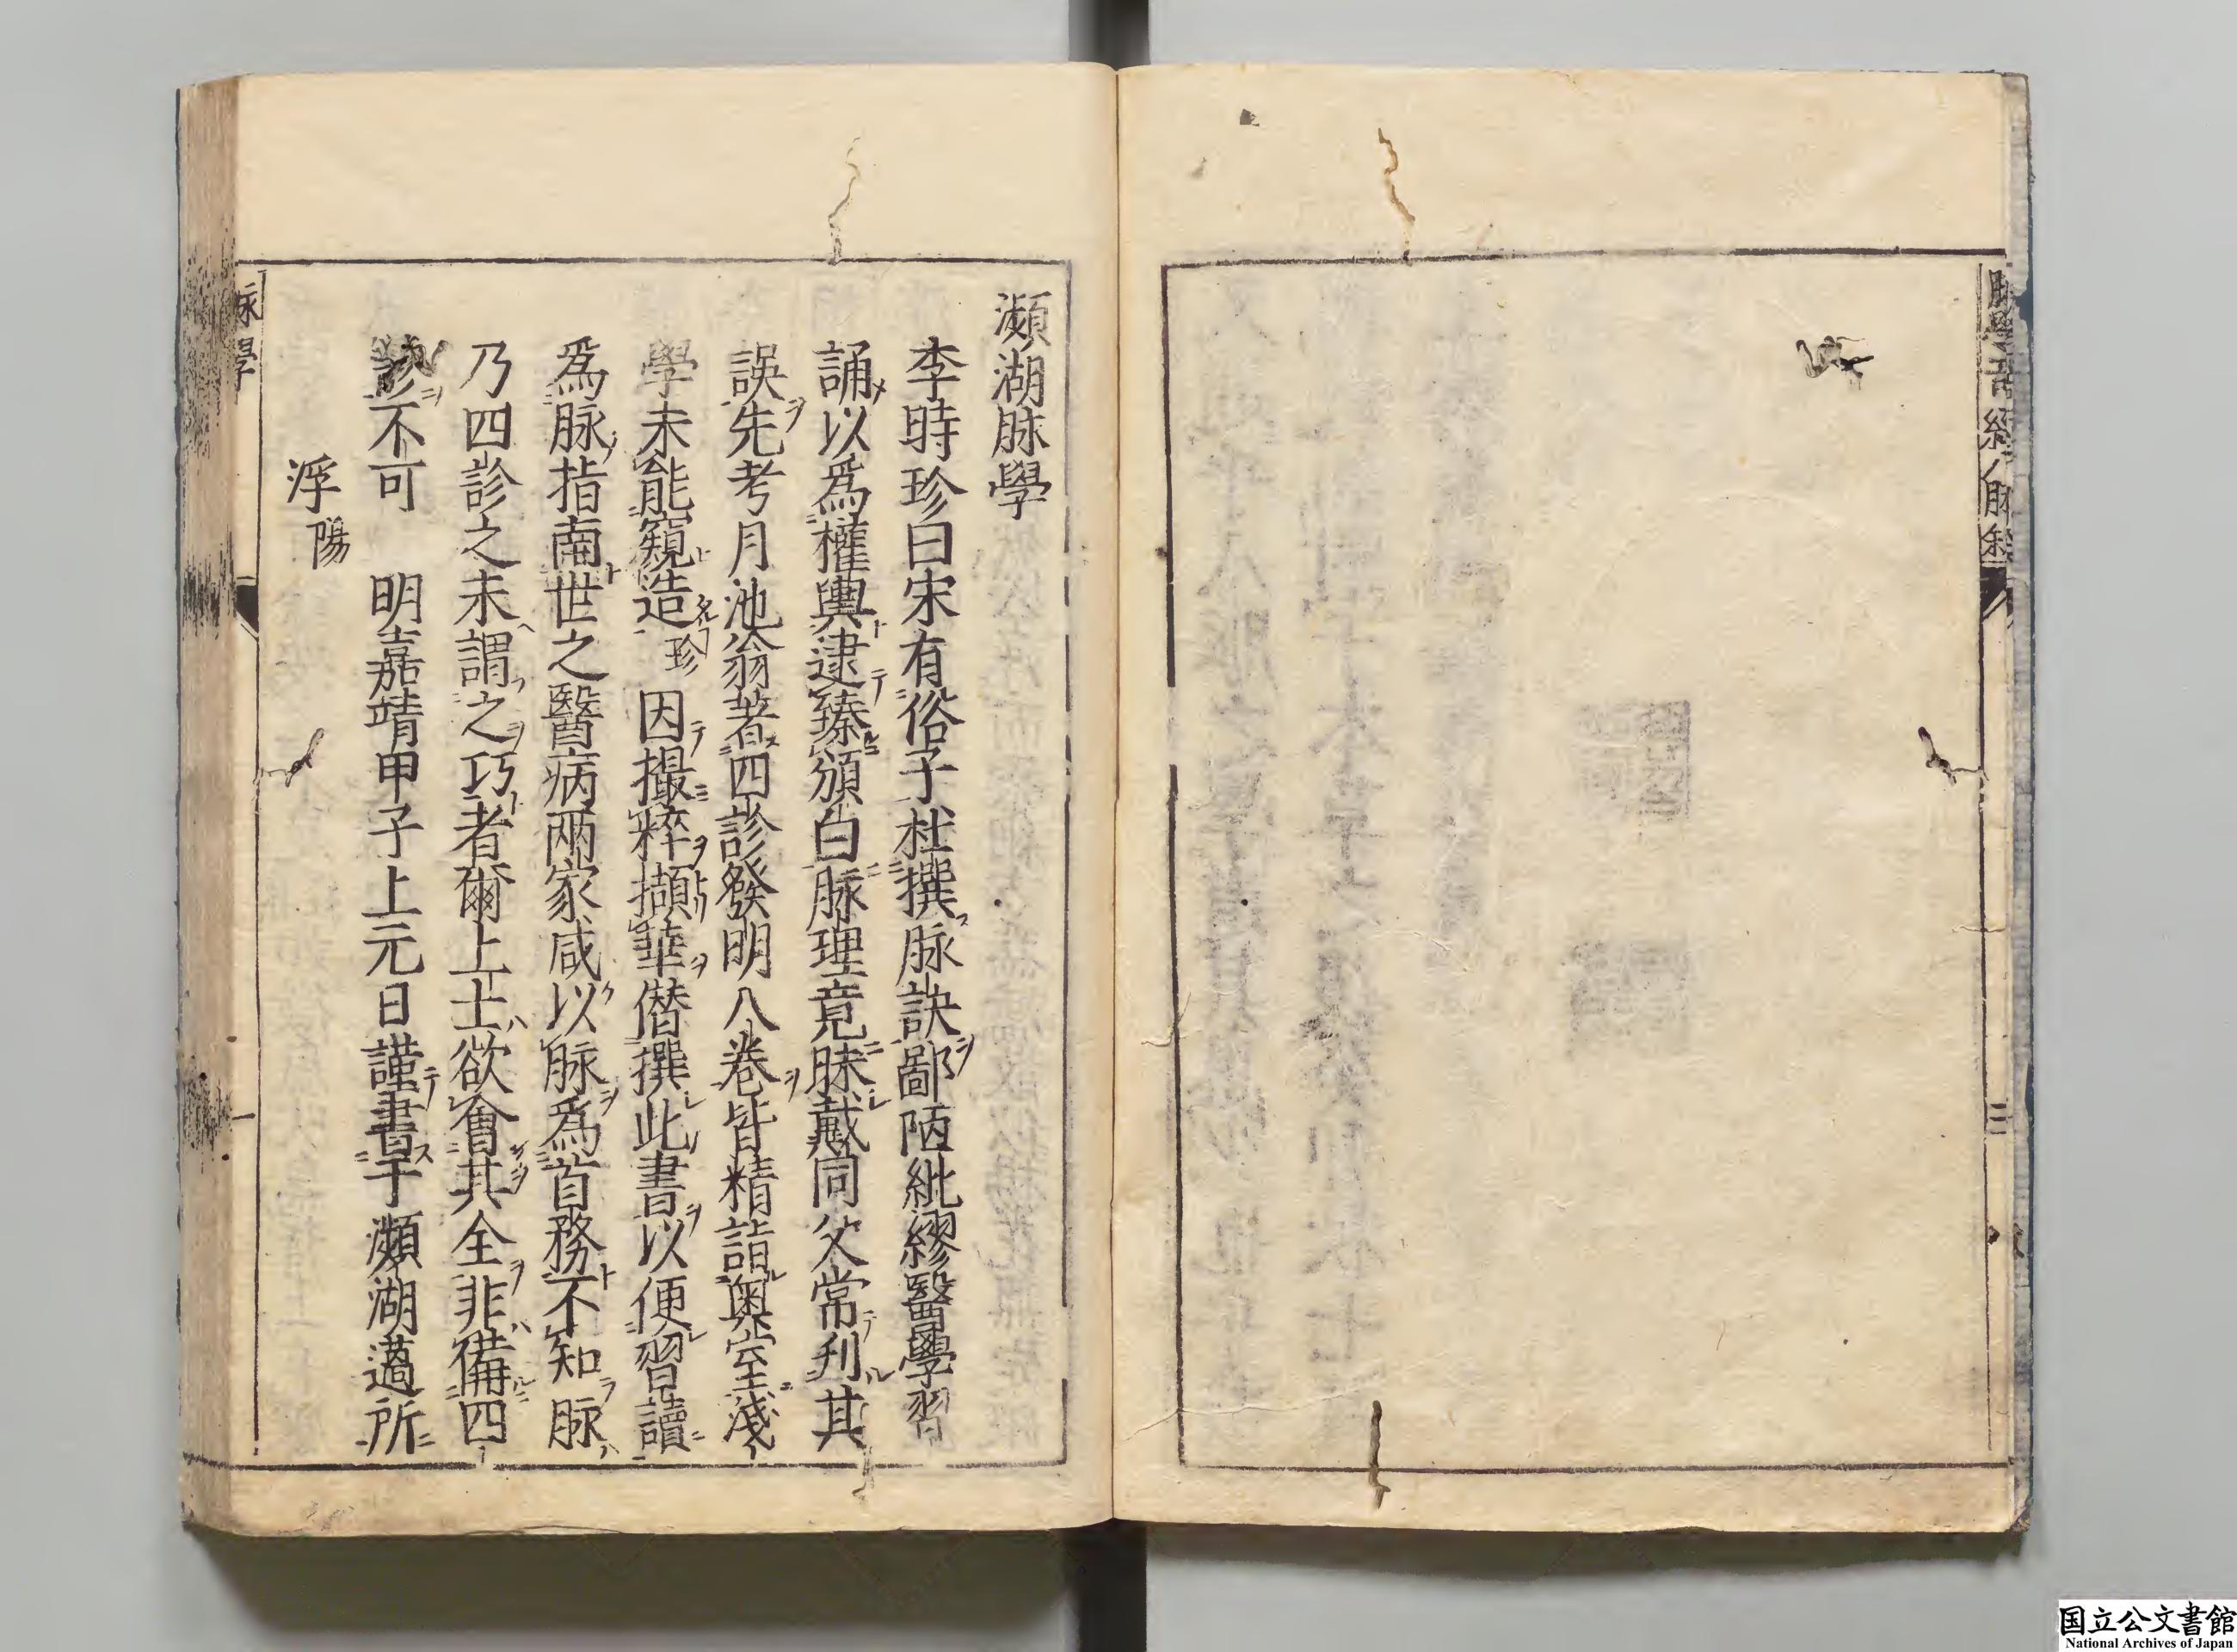 瀕湖脉學
李時珍曰宋有俗子杜撰脉訣鄙陋紕繆醫學習
誦以爲權輿逮臻頒白脉理竟昧戴同父常刋其
誤先考月池翁著四診發明八卷皆精詣奧室淺
學未能窺造珍因撮粹擷華僣撰此書以便習讀
爲脉指南世之醫病兩家咸以脉爲首務不知脉
乃四診之末謂之巧者爾上士欲會其全非備四
診不可　明嘉靖甲子上元日謹書于瀕湖薖所
浮陽
脉學
国立公文書館
National Archives of Japan